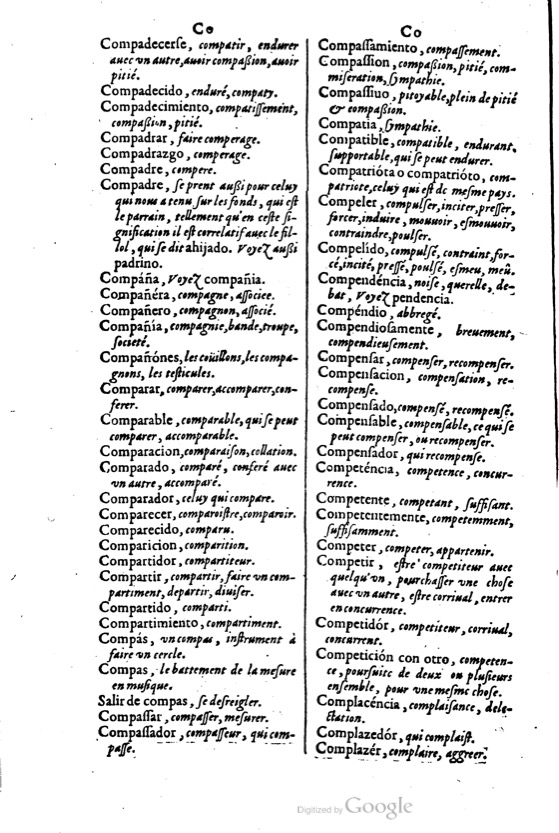 Co
Compadecerſe, compatir, endurer
auec vn autre, auoir compaßion, auoir
pitié.
Compadecido, enduré, compaty.
Compadecimiento, compatiſſement,
compaßion, pitié.
Compadrar, faire comperage.
Compadrazgo, comperage.
Compadre, compere.
Compadre, ſe prent außi pour celuy
qui nous a tenu ſur les fonds, qui eſt
le parrain, tellement qu'en ceſte ſi-
gnification il eſt correlatif auec le fil-
lol, qui ſe dit ahijado. Voyez außi
padrino.
Compáña, Voyez compañia.
Compañéra, compagne, aſſociee.
Compañero, compagnon, aſſocié.
Compañía, compagnie, bande, troupe,
ſocieté.
Compañónes, les coüillons, les compa-
gnons, les teſticules.
Comparar, comparer, accomparer, con-
ferer.
Comparable, comparable, qui ſe peut
comparer, accomparable.
Comparacion, comparaiſon, collation.
Comparado, comparé, conferé auec
vn autre, accomparé.
Comparador, celuy qui compare.
Comparecer, comparoiſtre, comparoir.
Comparecido, comparu.
Comparicion, comparition.
Compartidor, compartiteur.
Compartir, compartir, faire vn com-
partiment, departir, diuiſer.
Compartido, comparti.
Compartimiento, compartiment.
Compás, vn compas, inſtrument à
faire vn cercle.
Compas, le battement de la meſure
en muſique.
Salir de compas, ſe deſreigler.
Compaſſar, compaſſer, meſurer.
Compaſſador, compaſſeur, qui com-
paſſe.
Co
Compaſſamiento, compaſſement.
Compaſſion, compaßion, pitié, com-
miſeration, ſympathie.
Compaſſiuo, pitoyable, plein de pitié
& compaßion.
Compatia, ſympathie.
Compatible, compatible, endurant,
ſupportable, qui ſe peut endurer.
Compatrióta o compatrióto, com-
patriote, celuy qui eſt de meſme pays.
Compeler, compulſer, inciter, preſſer,
forcer, induire, mouuoir, eſmouuoir,
contraindre, poulſer.
Compelido, compulſé, contraint, for-
cé, incité, preſſé, poulſé, eſmeu, meü.
Compendéncia, noiſe, querelle, de-
bat, Voyez pendencia.
Compéndio, abbregé.
Compendioſamente, breuement,
compendieuſement.
Compenſar, compenſer, recompenſer.
Compenſacion, compenſation, re-
compenſe.
Compenſado, compenſé, recompenſé.
Compenſable, compenſable, ce qui ſe
peut compenſer, ou recompenſer.
Compenſador, qui recompenſe.
Competéncia, competence, concur-
rence.
Competente, competant, ſuffiſant.
Competentemente, competemment,
ſuffiſamment.
Competer, competer, appartenir.
Competir, eſtre competiteur auec
quelqu'vn, pourchaſſer vne choſe
auec vn autre, eſtre corriual, entrer
en concurrence.
Competidór, competiteur, corriual,
concurrent.
Competición con otro, competen-
ce, pourſuite de deux ou pluſieurs
enſemble, pour vne meſme choſe.
Complacéncia, complaiſance, dele-
ctation.
Complazedór, qui complaiſt.
Complazér, complaire, aggreer.
Digitized by Google